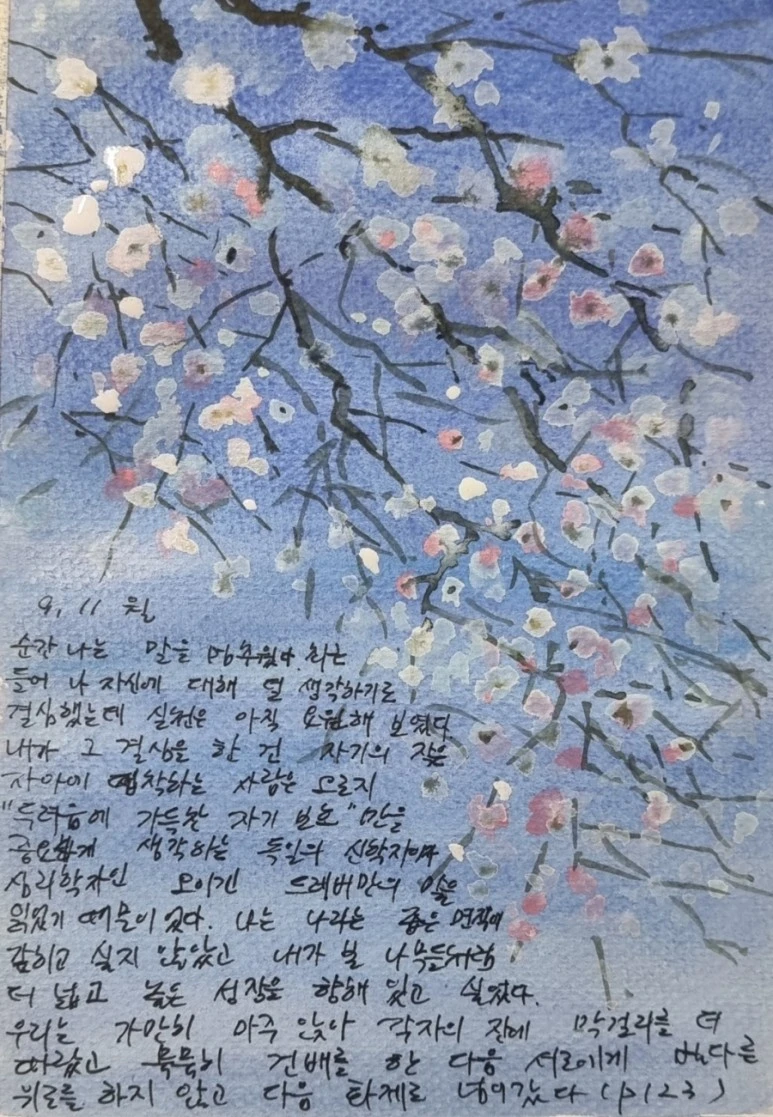 9. 11 월
순간 나는 말을 멈추었다 최근
들어 나 자신에 대해 덜 생각하기로
결심했는데 실천은 아직 요원해 보였다.
내가 그 결심을 한 건 자기의 작은
자아에 집착하는 사람은 오로지
"두려움에 가득찬 자기 보호"만을
중요하게 생각하는 독일의 신학자이자
심리학자인 오이겐 드레버만의 말을
읽었기 때문이었다. 나는 나라는 좁은 면적에
갇히고 싶지 않았고 내가 본 나무들처럼
더 넓고 높은 성장을 향해 있고 싶었다.
우리는 가만히 마주 앉아 각자의 잔에 막걸리를 더
따랐고 묵묵히 건배를 한 다음 서로에게 섣다른
위로를 하지 않고 다음 화제로 넘어갔다 (p123)